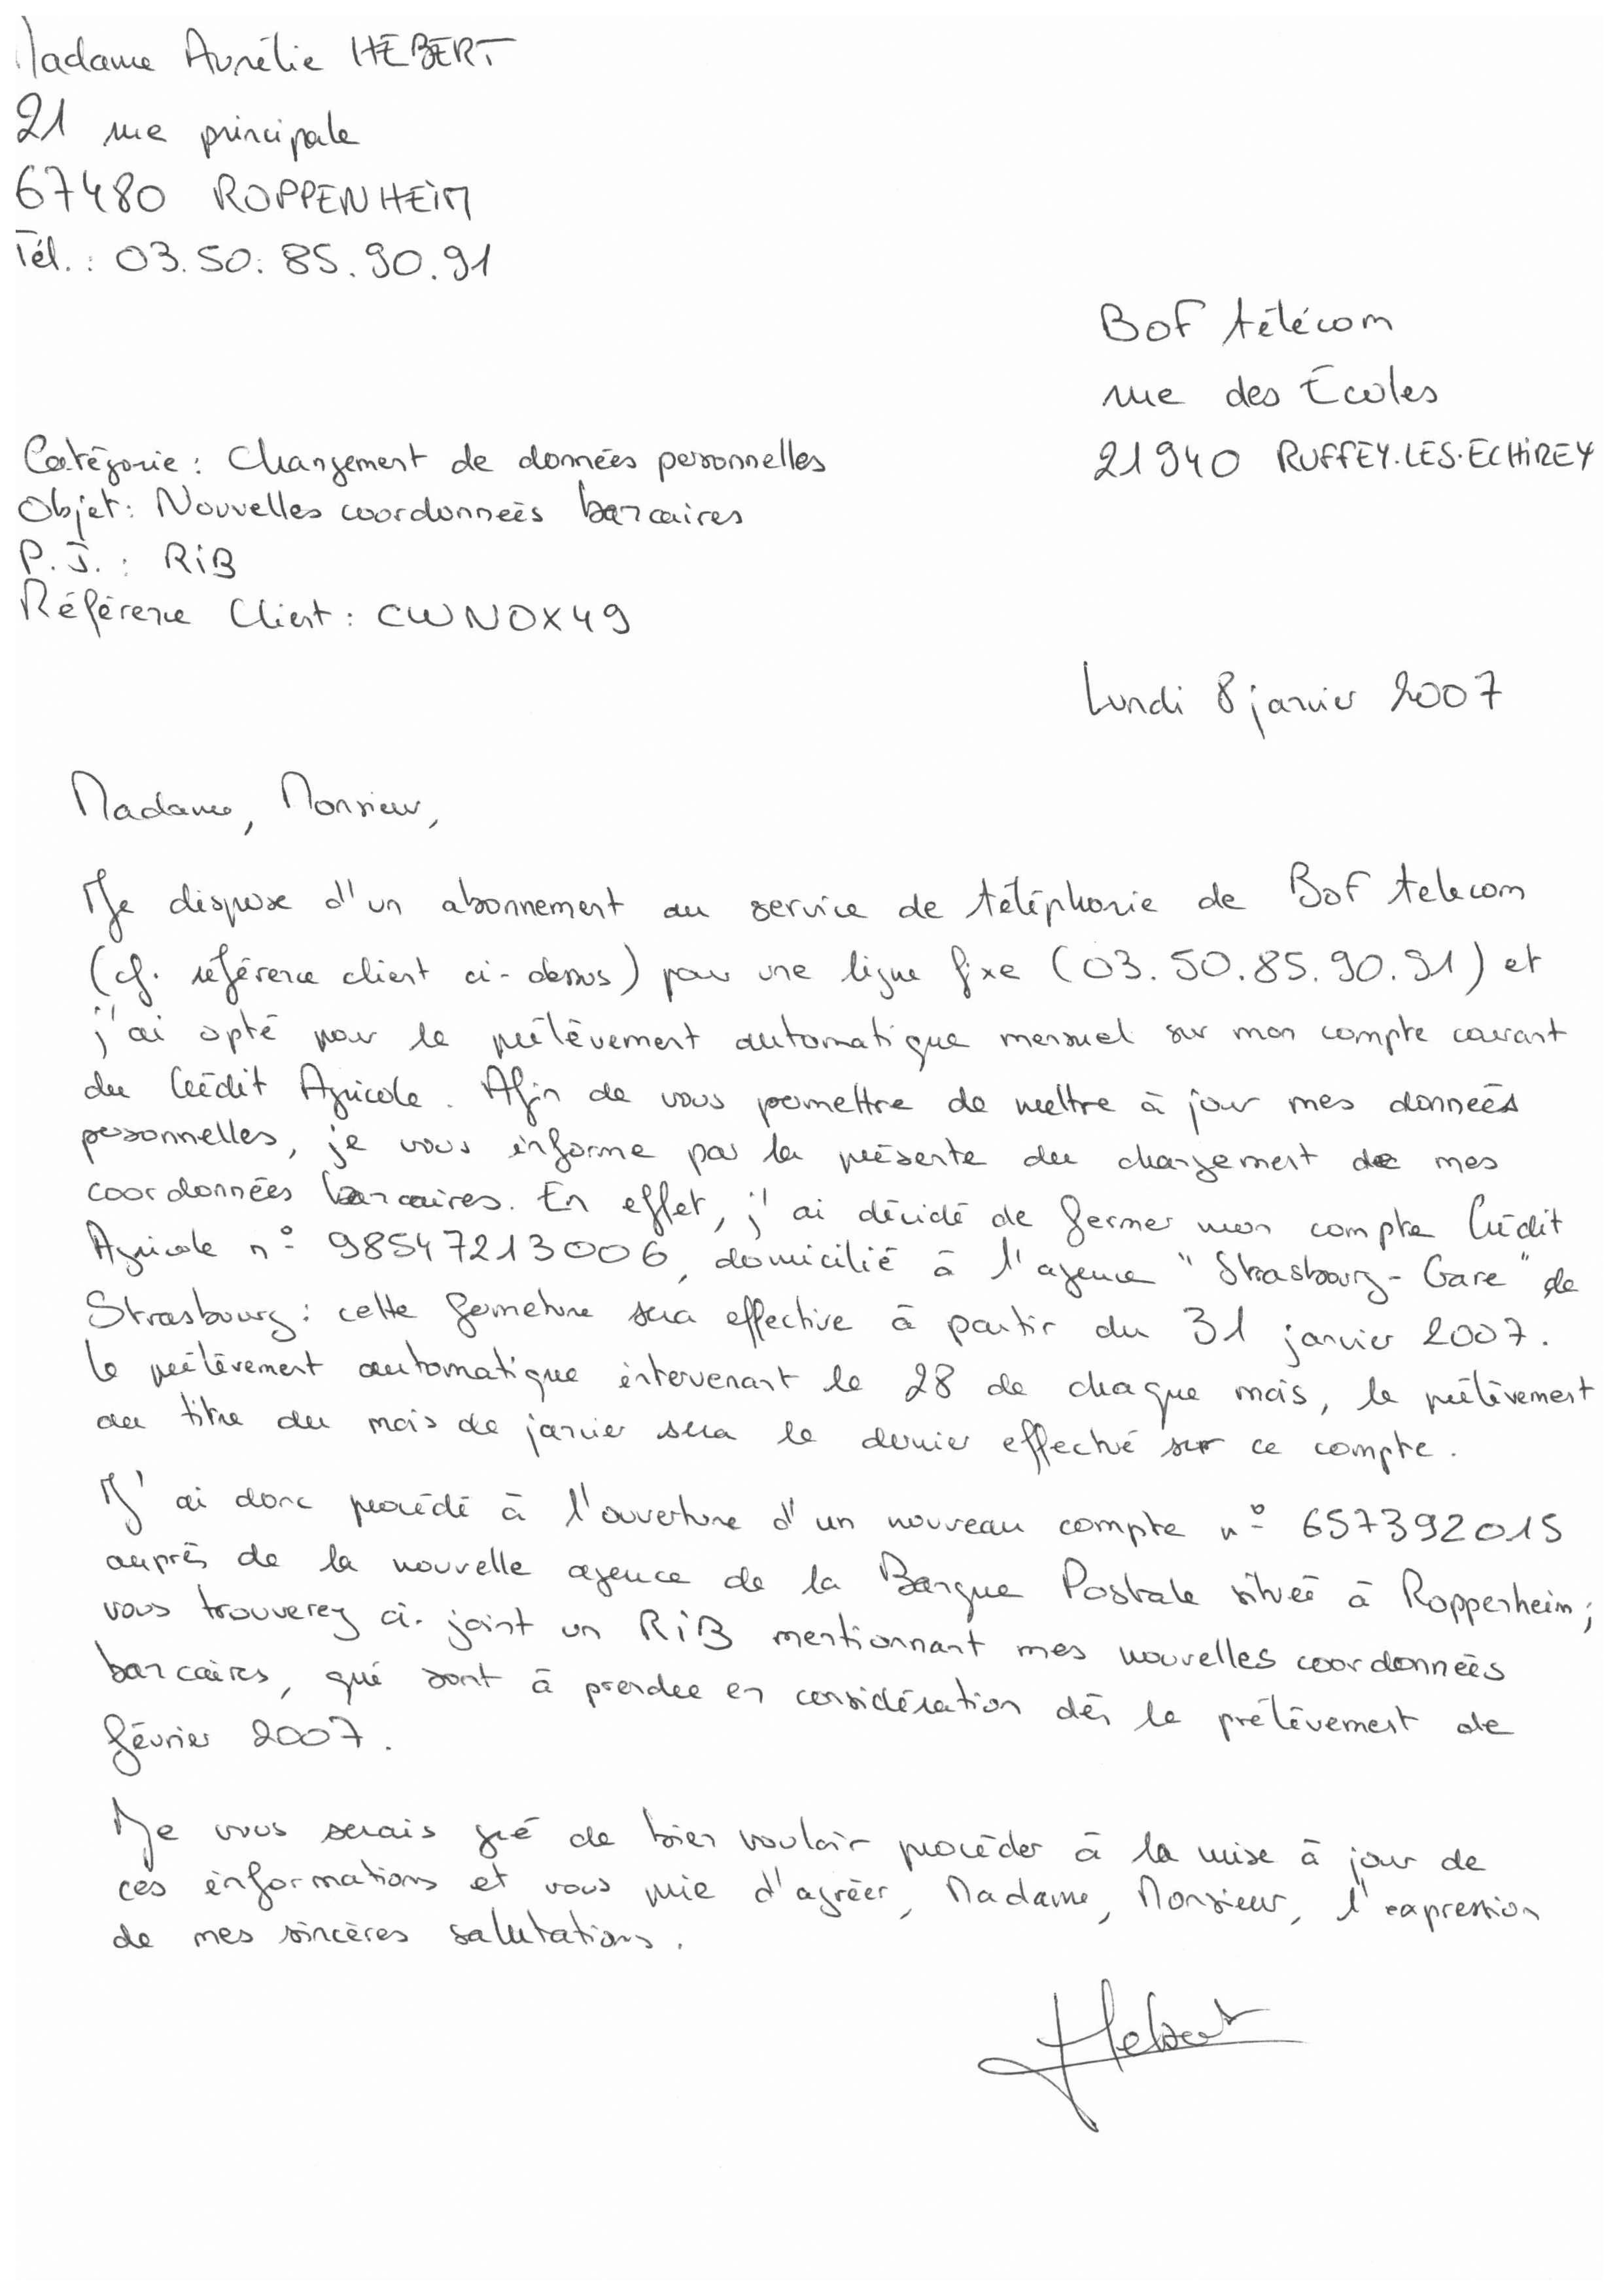 Madame Aurélie HÉBERT
21 rue principale
67480 ROPPENHEIM
Tél. : 03.50.85.90.91
BOF télécom
rue des Écoles
21940 RUFFEY-LES-ECHIREY
Catégorie : Changement de données personnelles
Objet : Nouvelles coordonnées bancaires
P.J. : RIB
Référence Client : CWNOX49
Lundi 8 janvier 2007
Madame, Monsieur,
Je dispose d'un abonnement au service de téléphonie de BOF telecom
(cf. référence client ci-dessus) pour une ligne fixe (03.50.85.90.91) et
j'ai opté pour le prélèvement automatique mensuel sur mon compte courant
du Crédit Agricole. Afin de vous permettre de mettre à jour mes données
personnelles, je vous informe par la présente du changement de mes
coordonnées bancaires. En effet, j'ai décidé de fermer mon compte Crédit
Agricole n° 98547213006, domicilié à l'agence "Strasbourg-Gare" de
Strasbourg : cette fermeture sera effective à partir du 31 janvier 2007.
Le prélèvement automatique intervenant le 28 de chaque mois, le prélèvement
au titre du mois de janvier sera le dernier effectué sur ce compte.
J'ai donc procédé à l'ouverture d'un nouveau compte n° 657392015
auprès de la nouvelle agence de la Banque Postale située à Roppenheim ;
vous trouverez ci-joint un RIB mentionnant mes nouvelles coordonnées
bancaires, qui sont à prendre en considération dès le prélèvement de
février 2007.
Je vous serais gré de bien vouloir procéder à la mise à jour de
ces informations et vous prie d'agréer, Madame, Monsieur, l'expression
de mes sincères salutations.
Hebert